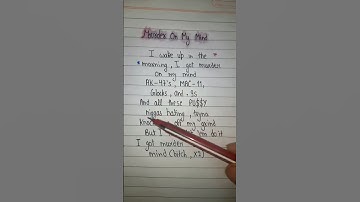 Murder On My Mind
I wake up in the
morning, I got murder
on my mind
AK-47's, MAC-11,
Glocks, and 9s
And all these PU$$Y
niggas hating, tryna
knock off my grind
But I do it
I got murder
mind (bitch, X2)